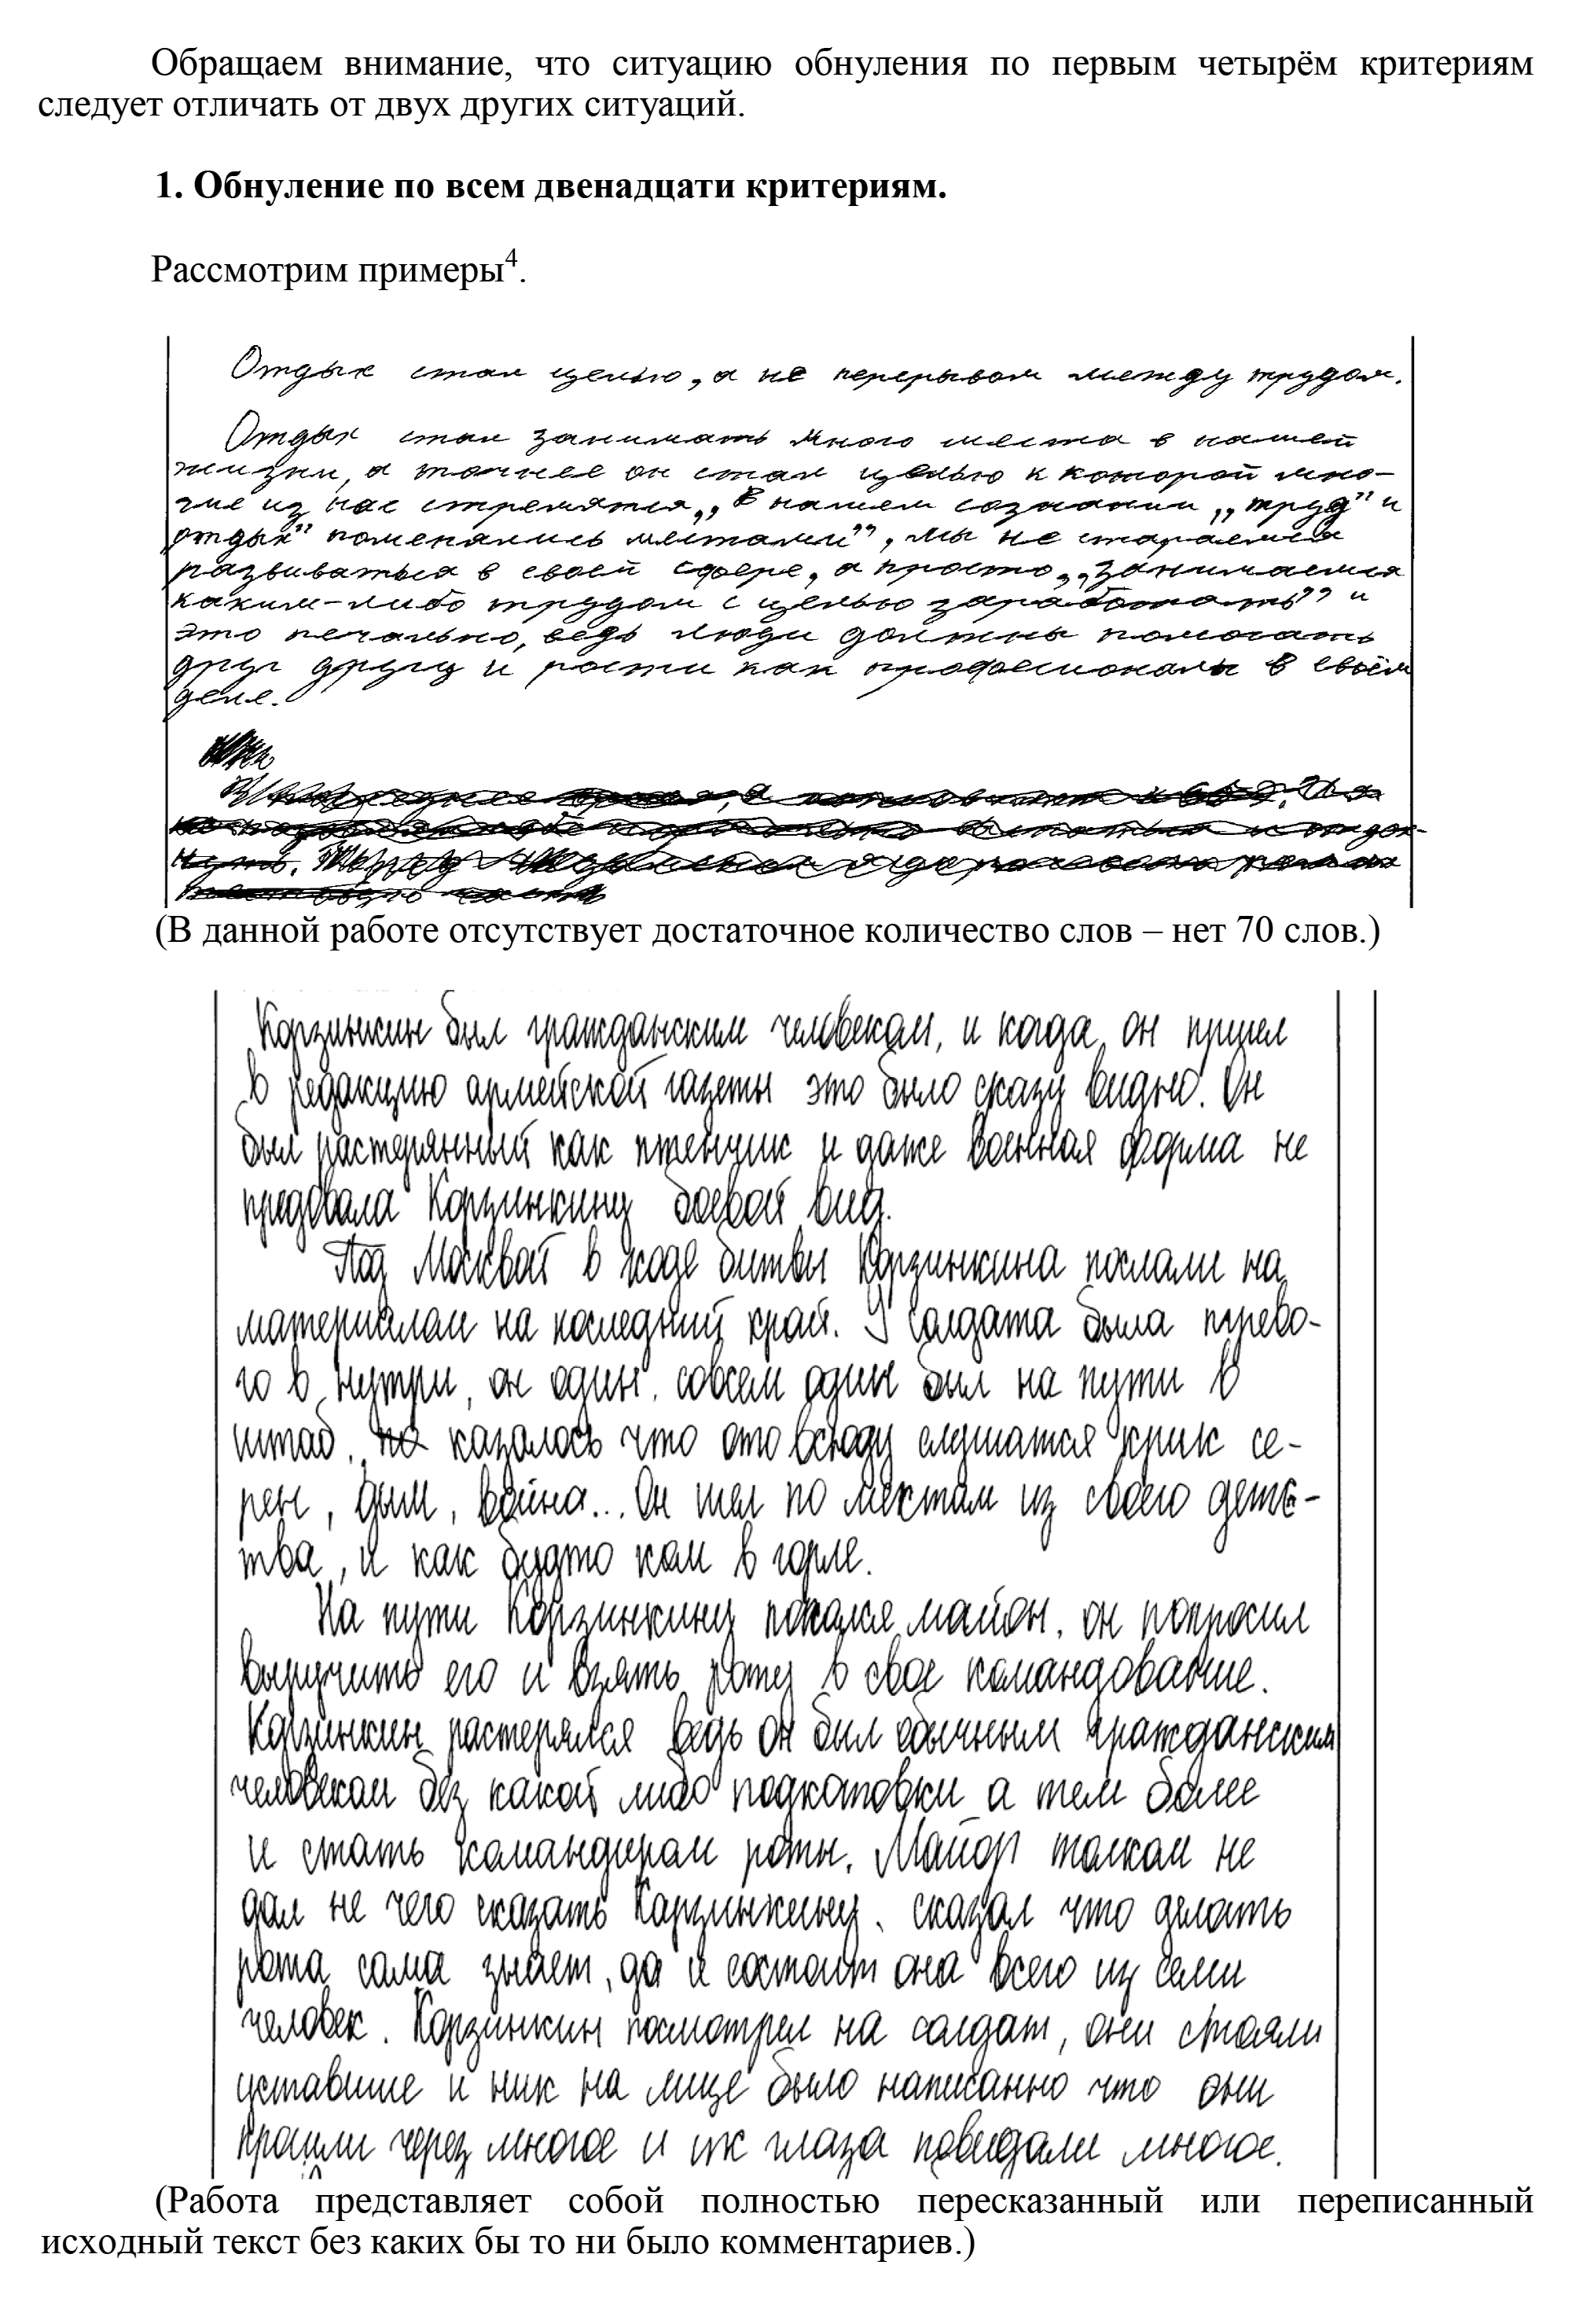 Обращаем внимание, что ситуацию обнуления по первым четырём критериям
следует отличать от двух других ситуаций.
1. Обнуление по всем двенадцати критериям.
Рассмотрим примеры⁴.
Отдых стал целью, а не перерывом между трудом.
Отдых стал занимать много места в нашей
жизни, а точнее он стал целью к которой мно-
гие из нас стремятся. „В нашем сознании „труд" и
отдых" поменялись местами", мы не стараемся
развиваться в своей сфере, а просто „занимаемся
каким-либо трудом с целью заработать" и
это печально, ведь люди должны помогать
друг другу и расти как професионалы в своём
деле.
(В данной работе отсутствует достаточное количество слов – нет 70 слов.)
Корзинкин был гражданским человеком, и когда он пришел
в редакцию армейской газеты это было сразу видно. Он
был растерянный как птенчик и даже военная форма не
предовала Корзинкину боевой вид.
Под Москвой в ходе битвы Корзинкина послали на
материалом на последний край. У солдата была трево-
га в нутри, он один, совсем один был на пути в
штаб, казалось что ото всюду слушатся крик се-
рен, дым, война... Он шел по местам из своего детс-
тва, и как будто ком в горле.
На пути Корзинкину попался майон, он попросил
выручить его и взять роту в свое командование.
Корзинкин растерялся ведь он был обычным гражданским
человеком без какой либо подготовки а тем более
и стать командиром роты. Майор толком не
дал не чего сказать Карзинкину, сказал что делать
рота сама знает, да и состоит она всего из семи
человек. Корзинкин посмотрел на солдат, они стояли
уставшие и них на лице было написанно что они
прошли через многое и их глаза повидали многое.
(Работа представляет собой полностью пересказанный или переписанный
исходный текст без каких бы то ни было комментариев.)